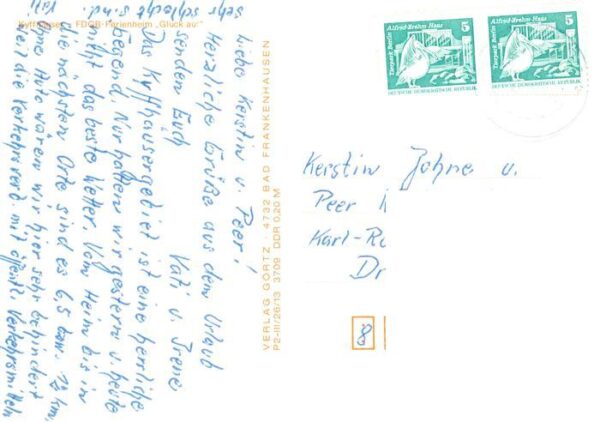 Kyffhäuser - FDGB-Ferienheim „Glück auf“
Liebe Kerstin u. Peer!
Herzliche Grüße aus dem Urlaub
senden Euch Kati u. Irene.
Das Kyffhäusergebiet ist eine herrliche
Gegend. Nur hatten wir gestern u. heute
nicht das beste Wetter. Vom Heim bis in
die nächsten Orte sind es 6,5 bzw. 12 km.
Ohne Auto wären wir hier sehr behindert
weil die Verkehrsverb. mit öffentl. Verkehrsmitteln
sehr schlecht sind.
VERLAG GÖRTZ · 4732 BAD FRANKENHAUSEN
P2-III/26/13 3709 DDR 0,20 M
Alfred-Brehm Haus
5
Tierpark Berlin
DEUTSCHE DEMOKRATISCHE REPUBLIK
Alfred-Brehm Haus
5
Tierpark Berlin
DEUTSCHE DEMOKRATISCHE REPUBLIK
Kerstin Johne u.
Peer
Karl-
Dr
8